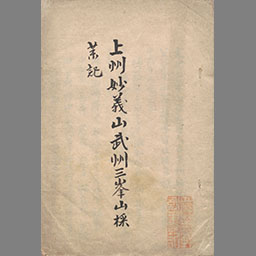 上州妙義山武州三峯山採
薬記